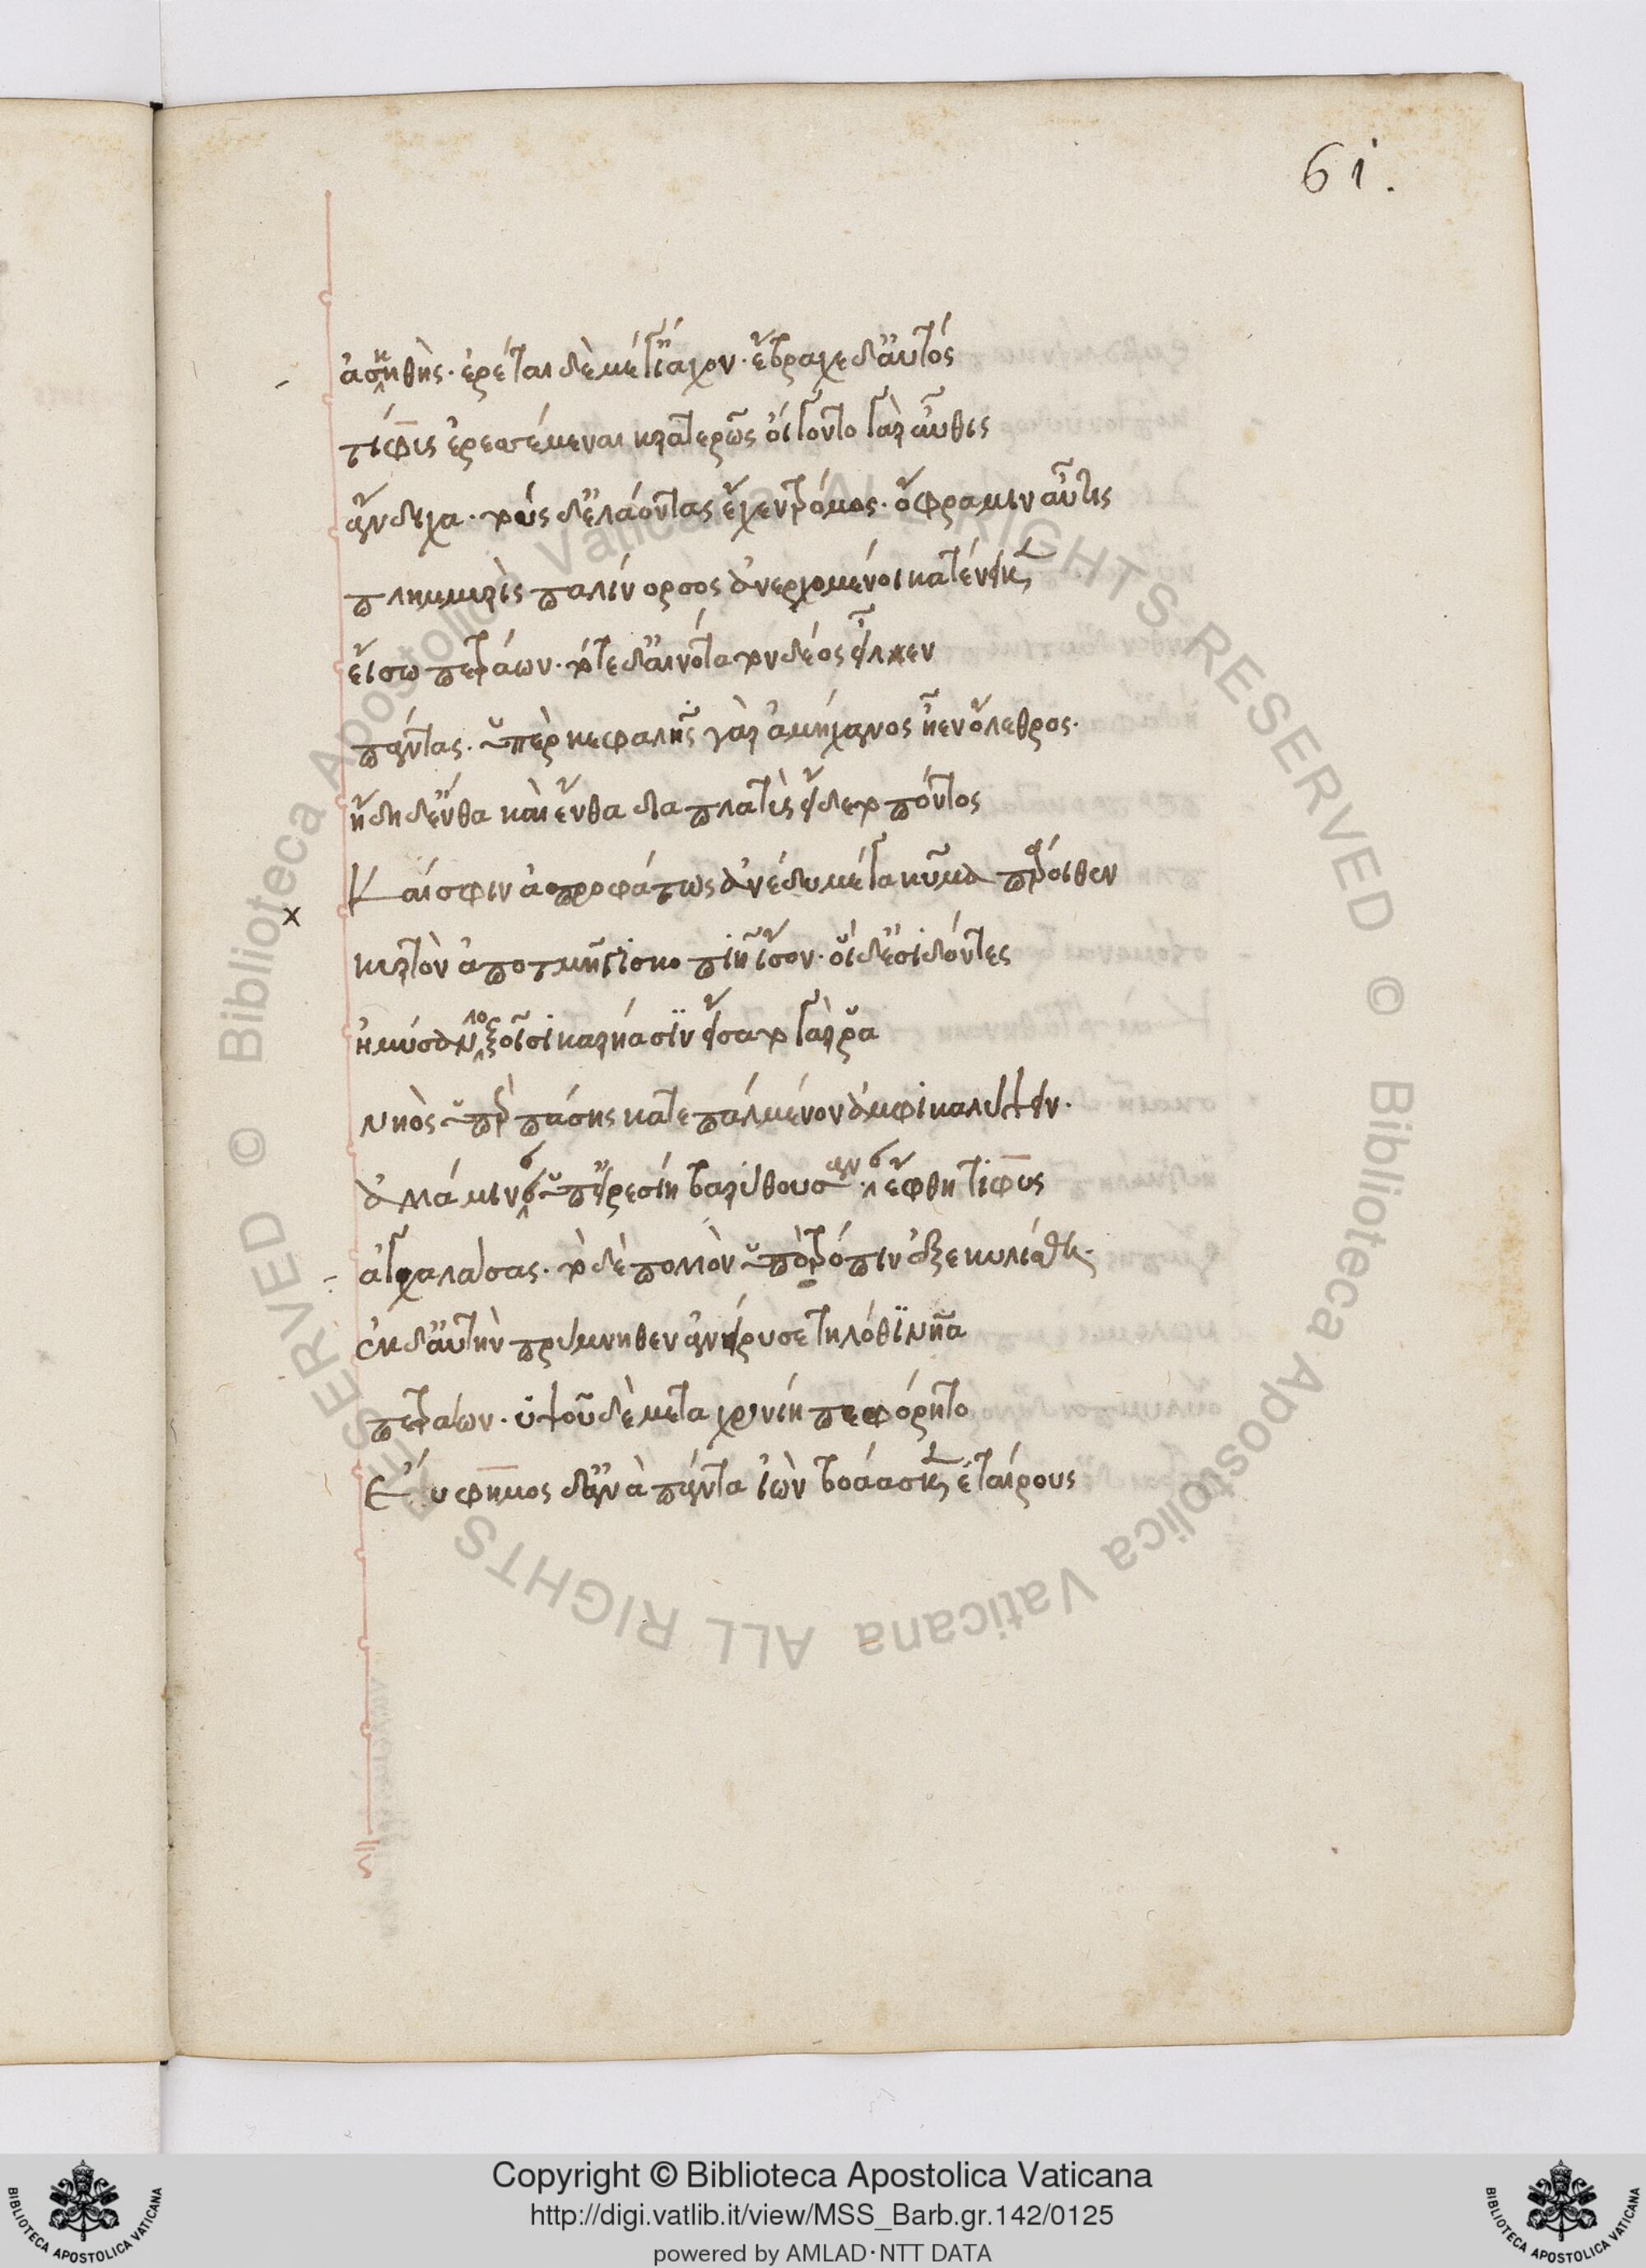 61.
ἀσκηθὴς· ἐρέται δὲ μέγ' ἴαχον· ἔβραχε δ' αὐτὸς
τίφις ἐρεσσέμεναι κρατερῶς· οἴγοντο γὰρ αὖθις
ἄνδιχα· τοὺς δ' ἐλάοντας ἔχεν τρόμος· ὄφρα μιν αὖτις
πλημμυρὶς παλίνορσος ἀνερχομένη κατένεικεν
εἴσω πετράων· τότε δ' αἰνότατον δέος εἷλεν
πάντας· ὑπὲρ κεφαλῆς γὰρ ἀμήχανος ἦεν ὄλεθρος·
ἤδη δ' ἔνθα καὶ ἔνθα διὰ πλατὺς εἴδετο πόντος
Καί σφιν ἀπροφάτως ἀνέδυ μέγα κῦμα πάροιθεν
κυρτὸν ἀποτμῆγι σκοπιῇ ἴσον· οἱ δ' ἐσιδόντες
ἤμυσαν λοξοῖσι καρήασιν εἴσατο γάρ ῥα
νηὸς ὑπὲρ πάσης κατεπάλμενον ἀμφικαλύψειν·
ἀλλά μιν ὑπ' εἰρεσίῃ βαρύθουσαν· ἔφθη τίφυς
ἀγχαλάσας· τὸ δὲ πολλὸν ὑπὸ τρόπιν ἐξεκυλίσθη·
ἐκ δ' αὐτὴν πρύμνηθεν ἀνείρυσε τηλόθι νῆα
πετράων· ὑψοῦ δὲ μεταχρονίη πεφόρητο
Εὔφημος δ' ἀνὰ πάντας ἰὼν βοάασκεν ἑταίρους
Copyright © Biblioteca Apostolica Vaticana
http://digi.vatlib.it/view/MSS_Barb.gr.142/0125
powered by AMLAD·NTT DATA